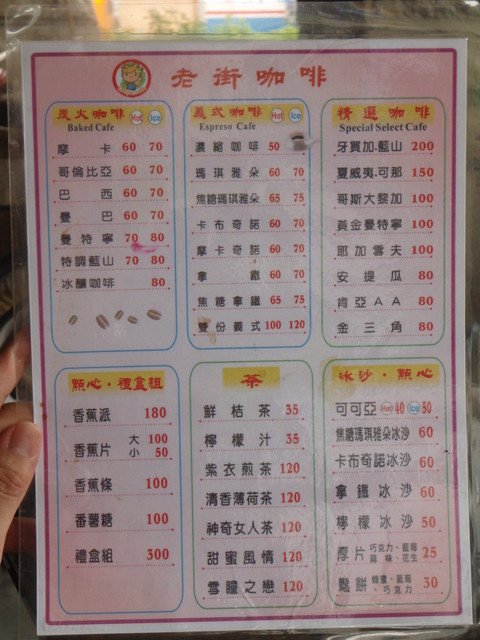 老街咖啡
炭火咖啡 Hot Ice
Baked Cafe
摩卡 60 70
哥倫比亞 60 70
巴西 60 70
曼巴 60 70
曼特寧 70 80
特調藍山 70 80
冰釀咖啡 80
義式咖啡 Hot Ice
Espreso Cafe
濃縮咖啡 50
瑪琪雅朵 60 70
焦糖瑪琪雅朵 65 75
卡布奇諾 60 70
摩卡奇諾 60 70
拿鐵 60 70
焦糖拿鐵 65 75
雙份義式 100 120
精選咖啡
Special Select Cafe
牙買加.藍山 200
夏威夷.可那 150
哥斯大黎加 100
黃金曼特寧 100
耶加雪夫 100
安提瓜 80
肯亞AA 80
金三角 80
點心.禮盒組
香蕉派 180
香蕉片 大 100
小 50
香蕉條 100
番薯糖 100
禮盒組 300
茶
鮮桔茶 35
檸檬汁 35
紫衣煎茶 120
清香薄荷茶 120
神奇女人茶 120
甜蜜風情 120
雪瞳之戀 120
冰沙.點心
可可亞 Hot 40 Ice 50
焦糖瑪琪雅朵冰沙 60
卡布奇諾冰沙 60
拿鐵冰沙 60
檸檬冰沙 50
厚片 巧克力、藍莓 25
蒜味、花生
鬆餅 蜂蜜、藍莓 30
、巧克力